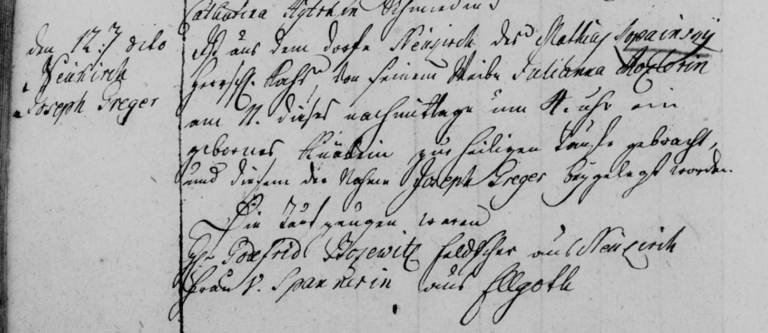 Catharina
den 12:7 dito
Neukirch
Joseph Greger
Ist aus dem Dorfe Neukirch, des Mathus
Herrsch. von seinem Weibe Julianna
am 11. dieses nachmittage um 4. uhr ein
gebornes Knäblein zur heiligen Taufe gebracht,
und diesem der Nahme Joseph Greger beygelegt worden.
Die Taufzeugen waren
Gotfrid Bosewitz Feldscher aus Neukirch
Frau V. Spannerin aus Ellgoth